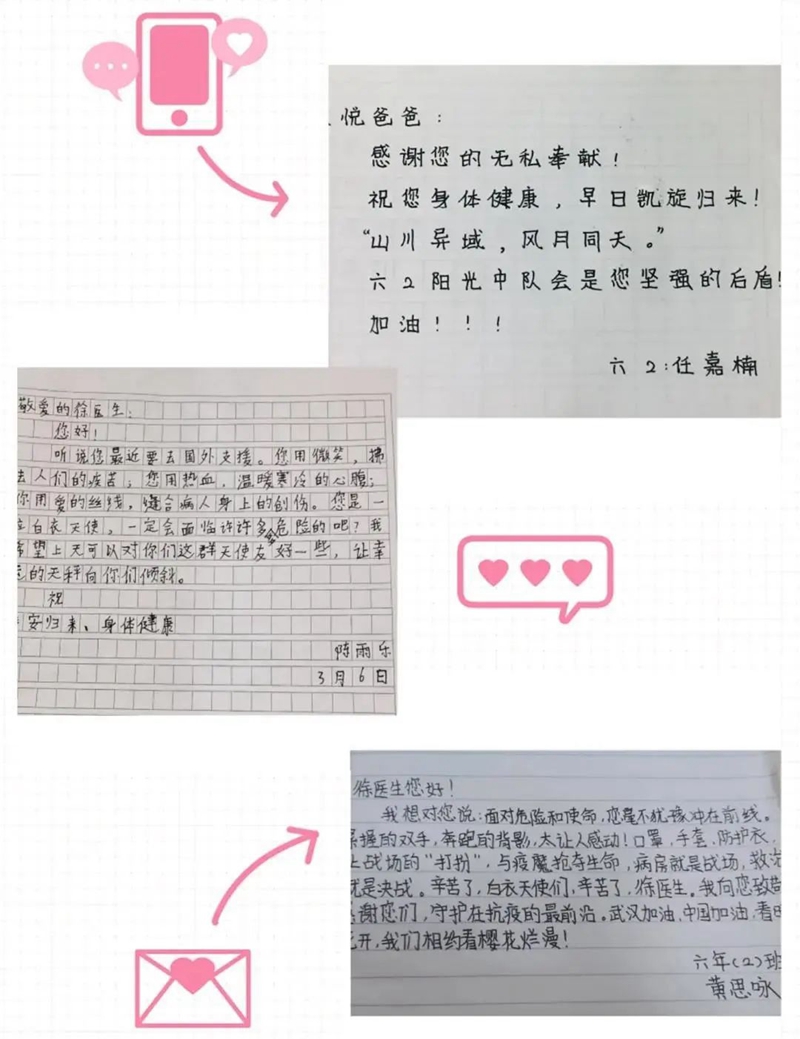 悦爸爸：
感谢您的无私奉献！
祝您身体健康，早日凯旋归来！
“山川异域，风月同天。”
六2阳光中队会是您坚强的后盾！
加油！！！
六2：任嘉楠
敬爱的徐医生：
您好！
听说您最近要去国外支援。您用微笑，拂
去人们的疾苦；您用热血，温暖寒冷的心腹；
你用爱的丝线，缝合病人身上的创伤。您是一
位白衣天使，一定会面临许许多多危险的吧？我
希望上天可以对你们这群天使友好一些，让幸
运的天秤向你们倾斜。
祝
安归来、身体健康
陈雨乐
3月6日
徐医生您好！
我想对您说：面对危险和使命，您毫不犹豫冲在前线。
紧握的双手，奔跑的背影，太让人感动！口罩，手套，防护衣，
上战场的“打扮”，与疫魔抢夺生命，病房就是战场，救治
就是决战。辛苦了，白衣天使们，辛苦了，徐医生。我向您致敬
感谢您们，守护在抗疫的最前沿。武汉加油，中国加油，春暖
花开，我们相约看樱花烂漫！
六年（2）班
黄思咏